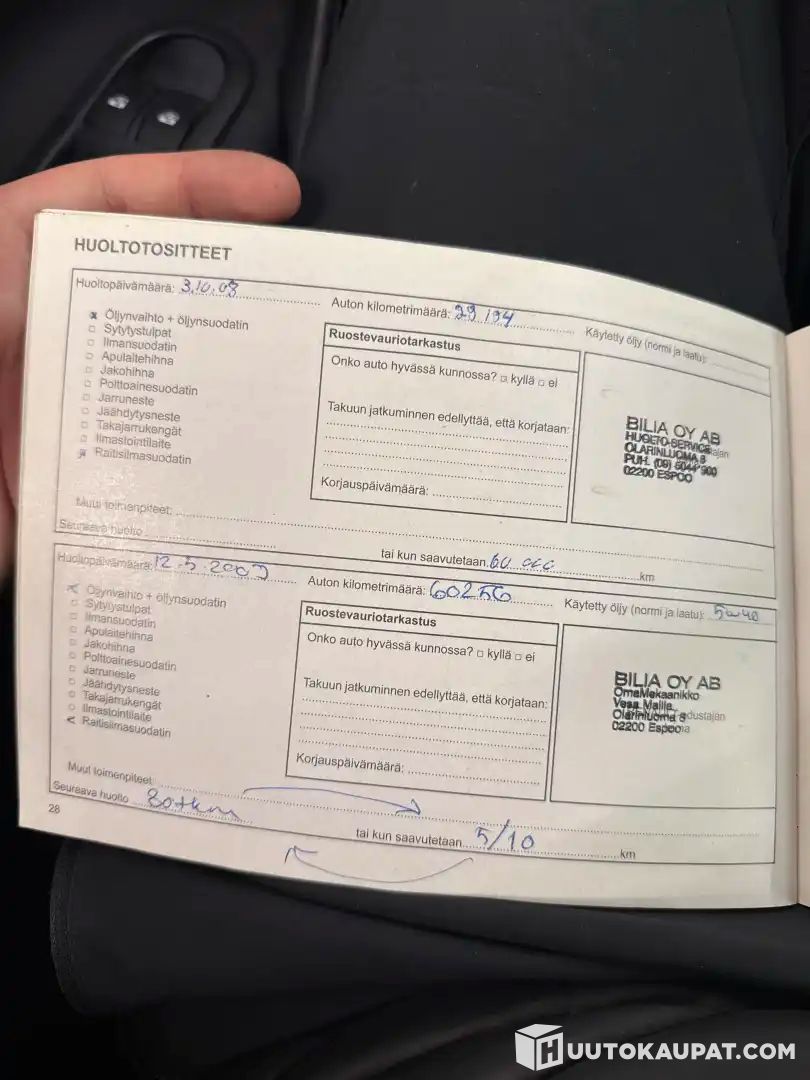 HUOLTOTOSITTEET
Huoltopäivämäärä: 3.10.08
Auton kilometrimäärä: 29194
Käytetty öljy (normi ja laatu):
Öljynvaihto + öljynsuodatin
Sytytystulpat
Ilmansuodatin
Apulaitehihna
Jakohihna
Polttoainesuodatin
Jarruneste
Jäähdytysneste
Takajarrukengät
Ilmastointilaite
Raitisilmasuodatin
Ruostevauriotarkastus
Onko auto hyvässä kunnossa? kyllä ei
Takuun jatkuminen edellyttää, että korjataan:
Korjauspäivämäärä:
BILIA OY AB
HUOLTO-SERVICE
OLARINLUOMA 8
PUH. (09) 5044 900
02200 ESPOO
Muut toimenpiteet:
Seuraava huolto
tai kun saavutetaan 60 000 km
Huoltopäivämäärä: 12.5.2009
Auton kilometrimäärä: 60256
Käytetty öljy (normi ja laatu): 5w40
Öljynvaihto + öljynsuodatin
Sytytystulpat
Ilmansuodatin
Apulaitehihna
Jakohihna
Polttoainesuodatin
Jarruneste
Jäähdytysneste
Takajarrukengät
Ilmastointilaite
Raitisilmasuodatin
Ruostevauriotarkastus
Onko auto hyvässä kunnossa? kyllä ei
Takuun jatkuminen edellyttää, että korjataan:
Korjauspäivämäärä:
BILIA OY AB
OmaMekaanikko
Vesa
Olarinluoma 8
02200 Espoo
Muut toimenpiteet:
Seuraava huolto 80tkm
tai kun saavutetaan 5/10 km
28
HUUTOKAUPAT.COM